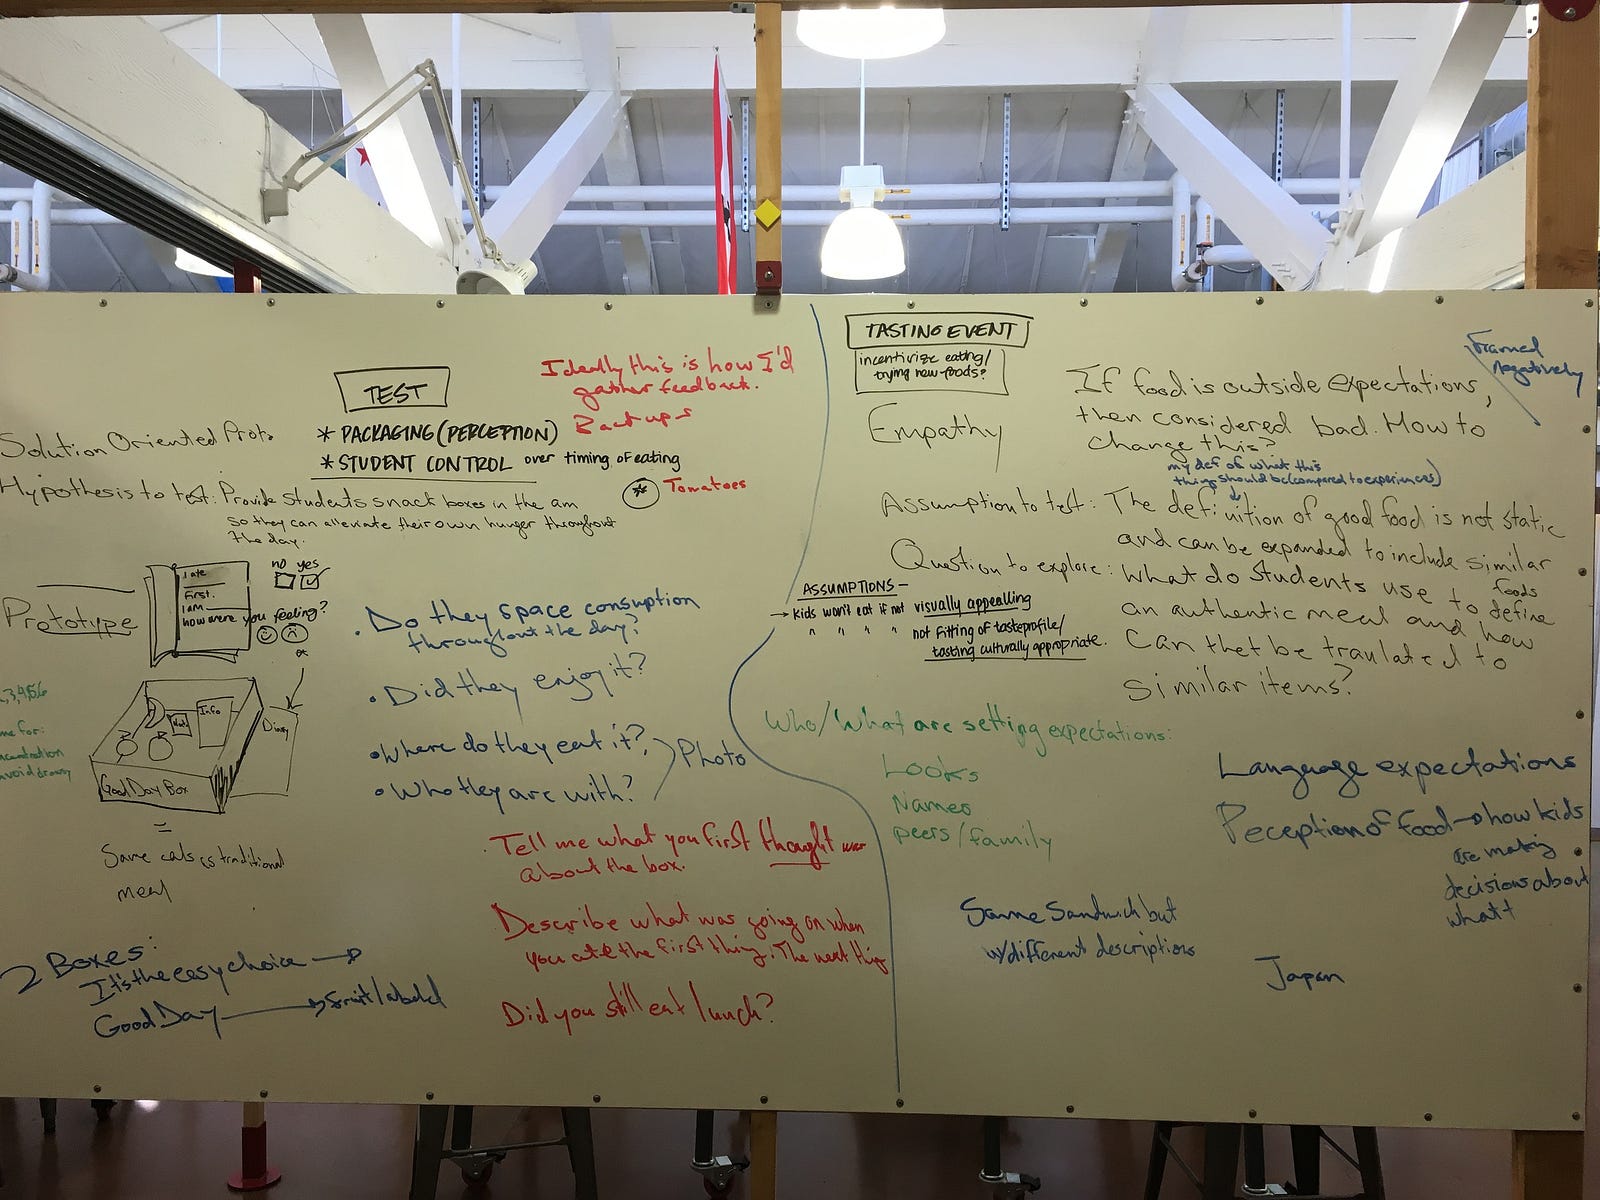 TEST
Ideally this is how I'd
gather feedback.
Backups
Solution Oriented Proto
* PACKAGING (PERCEPTION)
* STUDENT CONTROL over timing of eating
* Tomatoes
Hypothesis to test: Provide students snack boxes in the am
so they can alleviate their own hunger throughout
the day.
Prototype
I ate
First.
I am
how were you feeling?
no yes
*
Info
Nut
Diary
Good Day Box
=
Same cals as traditional
meal
,3,4,5,6
me for:
avoid drowsy
2 Boxes:
It's the easy choice →
Good Day → fruit labeled
• Do they space consuption
throughout the day?
• Did they enjoy it?
• Where do they eat it?
• Who they are with?
Photo
Tell me what you first thought was
about the box.
Describe what was going on when
you ate the first thing. The next thing
Did you still eat lunch?
TASTING EVENT
incentivize eating/
trying new foods?
Framed
negatively
Empathy
If food is outside expectations,
then considered bad. How to
change this?
my def of what this
thing should be (compared to experiences)
Assumption to test: The definition of good food is not static
and can be expanded to include similar
foods
Question to explore: What do students use to define
an authentic meal and how
can thet be tranlated to
similar items?
ASSUMPTIONS —
→ Kids won't eat if not visually appealling
" " " " not fitting of taste profile/
tasting culturally appropriate.
Who/What are setting expectations:
Looks
Names
peers/family
Language expectations
Peception of food → how kids
are making
decisions about
what t
Same Sandwich but
w/different descriptions
Japan